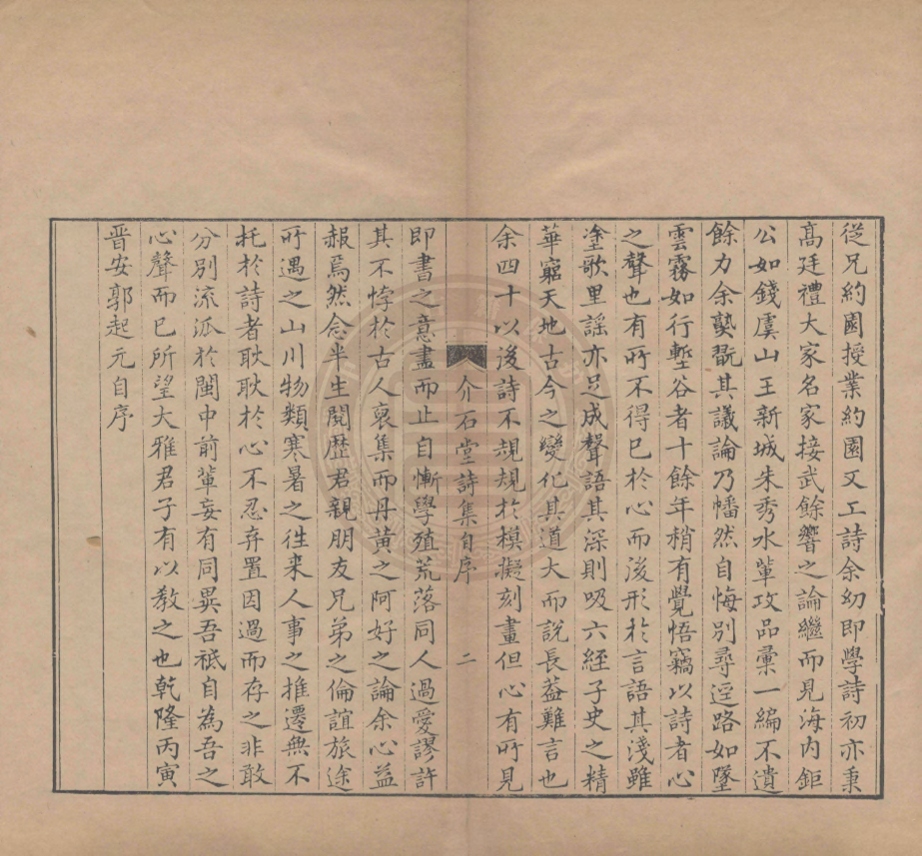 從兄約園授業約園又工詩余幼即學詩初亦秉
高廷禮大家名家接武餘響之論繼而見海内鉅
公如錢虞山王新城朱秀水輩攻品彙一編不遺
餘力余爇翫其議論乃幡然自悔別尋逕路如墜
雲霧如行壍谷者十餘年稍有覺悟竊以詩者心
之聲也有所不得已於心而後形於言語其淺雖
塗歌里謡亦足成聲語其深則吸六經子史之精
華窮天地古今之變化其道大而說長葢難言也
余四十以後詩不規規於模擬刻畫但心有所見
介石堂詩集自序 二
即書之意盡而止自慚學殖荒落同人過愛謬許
其不悖於古人裒集而丹黄之阿好之論余心益
赧焉然念半生閲歴君親朋友兄弟之倫誼旅途
所遇之山川物類寒暑之徃来人事之推遷無不
托於詩者耿耿於心不忍弃置因過而存之非敢
分別流派於閩中前輩妄有同異吾祗自為吾之
心聲而已所望大雅君子有以教之也乾隆丙寅
晋安郭起元自序